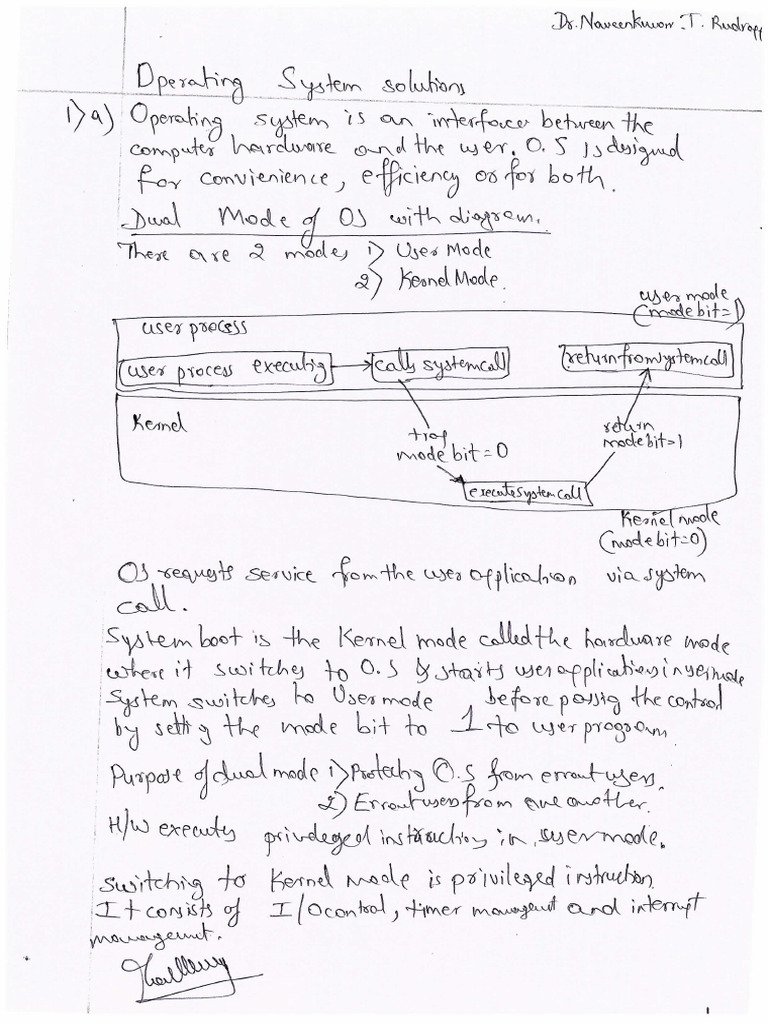 Dr. Naveenkumar .T. Rudrapp
Operating System solutions
1) a) Operating system is an interface between the
computer hardware and the user. O.S is designed
for convienience, efficiency or for both.
Dual Mode of OS with diagram.
There are 2 modes 1) User Mode
2) Kernel Mode.
user mode
(mode bit=1)
user process
user process executig
calls systemcall
return from system call
Kernel
trap
mode bit = 0
return
mode bit=1
execute system call
Kernel mode
(mode bit=0)
OS requests service from the user application via system
call.
System boot is the Kernel mode called the hardware mode
where it switches to O.S & starts user applications in user mode
System switches to User mode, before passig the control
by settig the mode bit to 1 to user program
Purpose of dual mode 1) Protectig O.S from errant users.
2) Errant users from one another.
H/W executes privileged instructions in user mode.
Switching to Kernel Mode is privileged instruction.
It consists of I/O control, timer managemt and interrupt
managemnt.
1